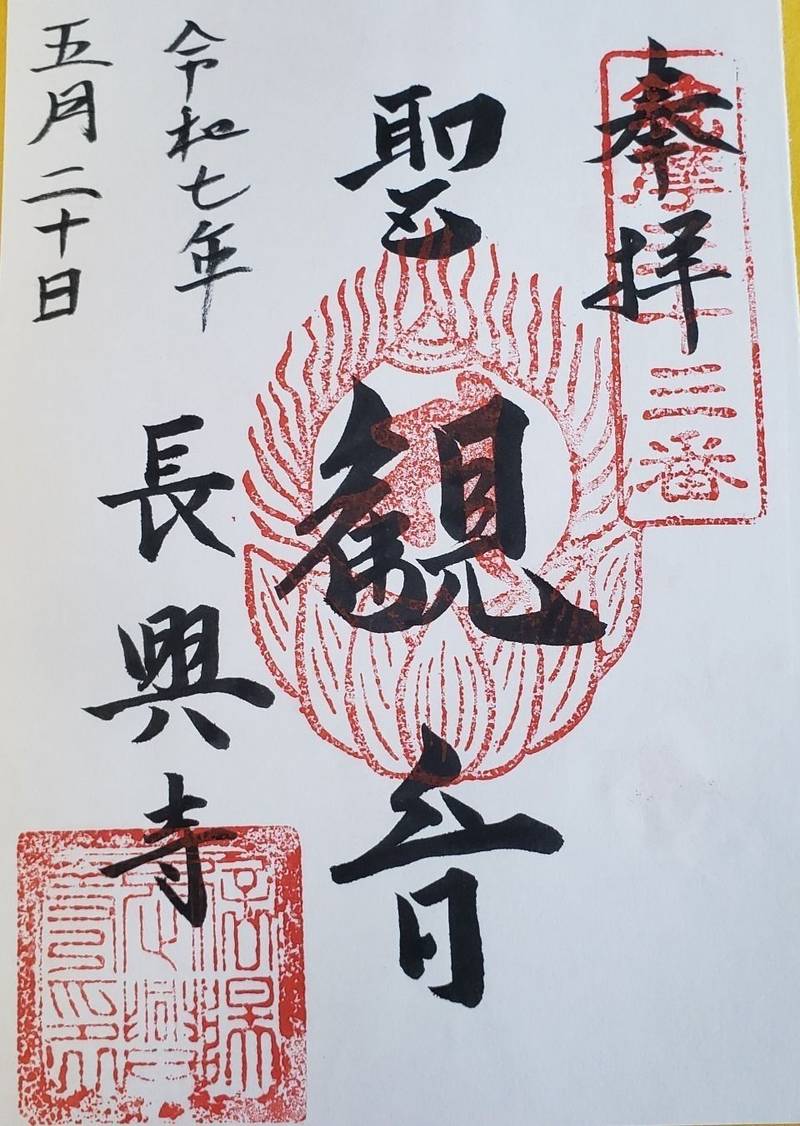 奉拝
筑摩三十三番
聖観音
令和七年
五月二十日
長興寺